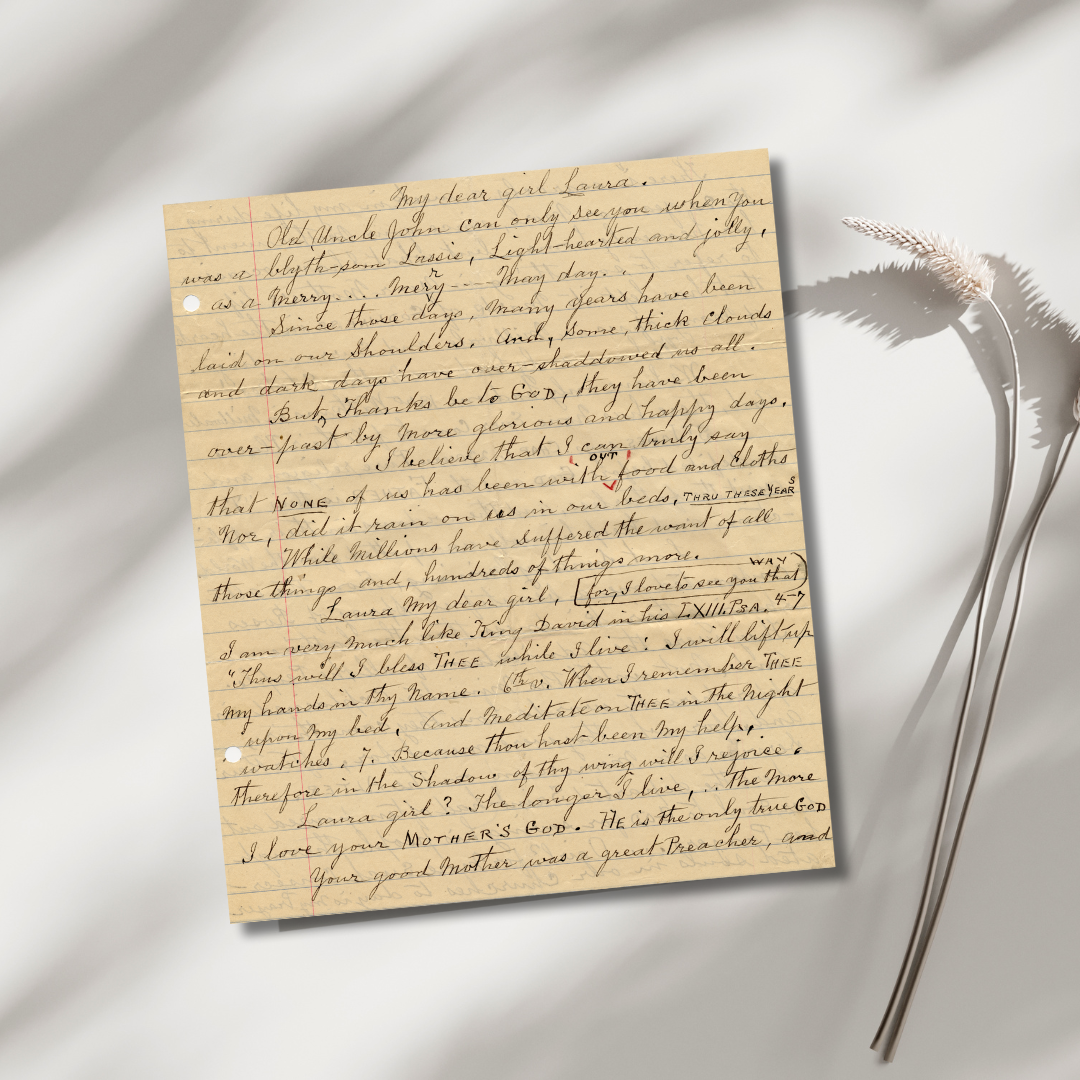 My dear girl Laura.
Old Uncle John can only see you when You
was a blyth-som Lassie, Light-hearted and jolly,
as a Merry.... Merry---- May day..
Since those days, Many years have been
laid on our Shoulders. And, Some, thick Clouds
and dark days have over-shaddowed us all.
But, Thanks be to GOD, they have been
over-past by More glorious and happy days.
I believe that I can truly say
that NONE of us has been without food and Cloths
Nor, did it rain on us in our beds, THRU THESE YEARS
While Millions have Suffered the want of all
those things and, hundreds of things more.
Laura My dear girl, [for, I love to see you that WAY)
I am very much like King David in his LXIII. PSA. 4-7
"Thus will I bless THEE while I live: I will lift up
My hands in thy Name. 6th v. When I remember THEE
upon My bed, And Meditate on THEE in the Night
watches. 7. Because thou hast been My help,
therefore in the Shadow of thy wing will I rejoice.
Laura girl? The longer I live,.. the More
I love your MOTHER'S GOD. HE is the only true GOD
Your good Mother was a great Preacher, and